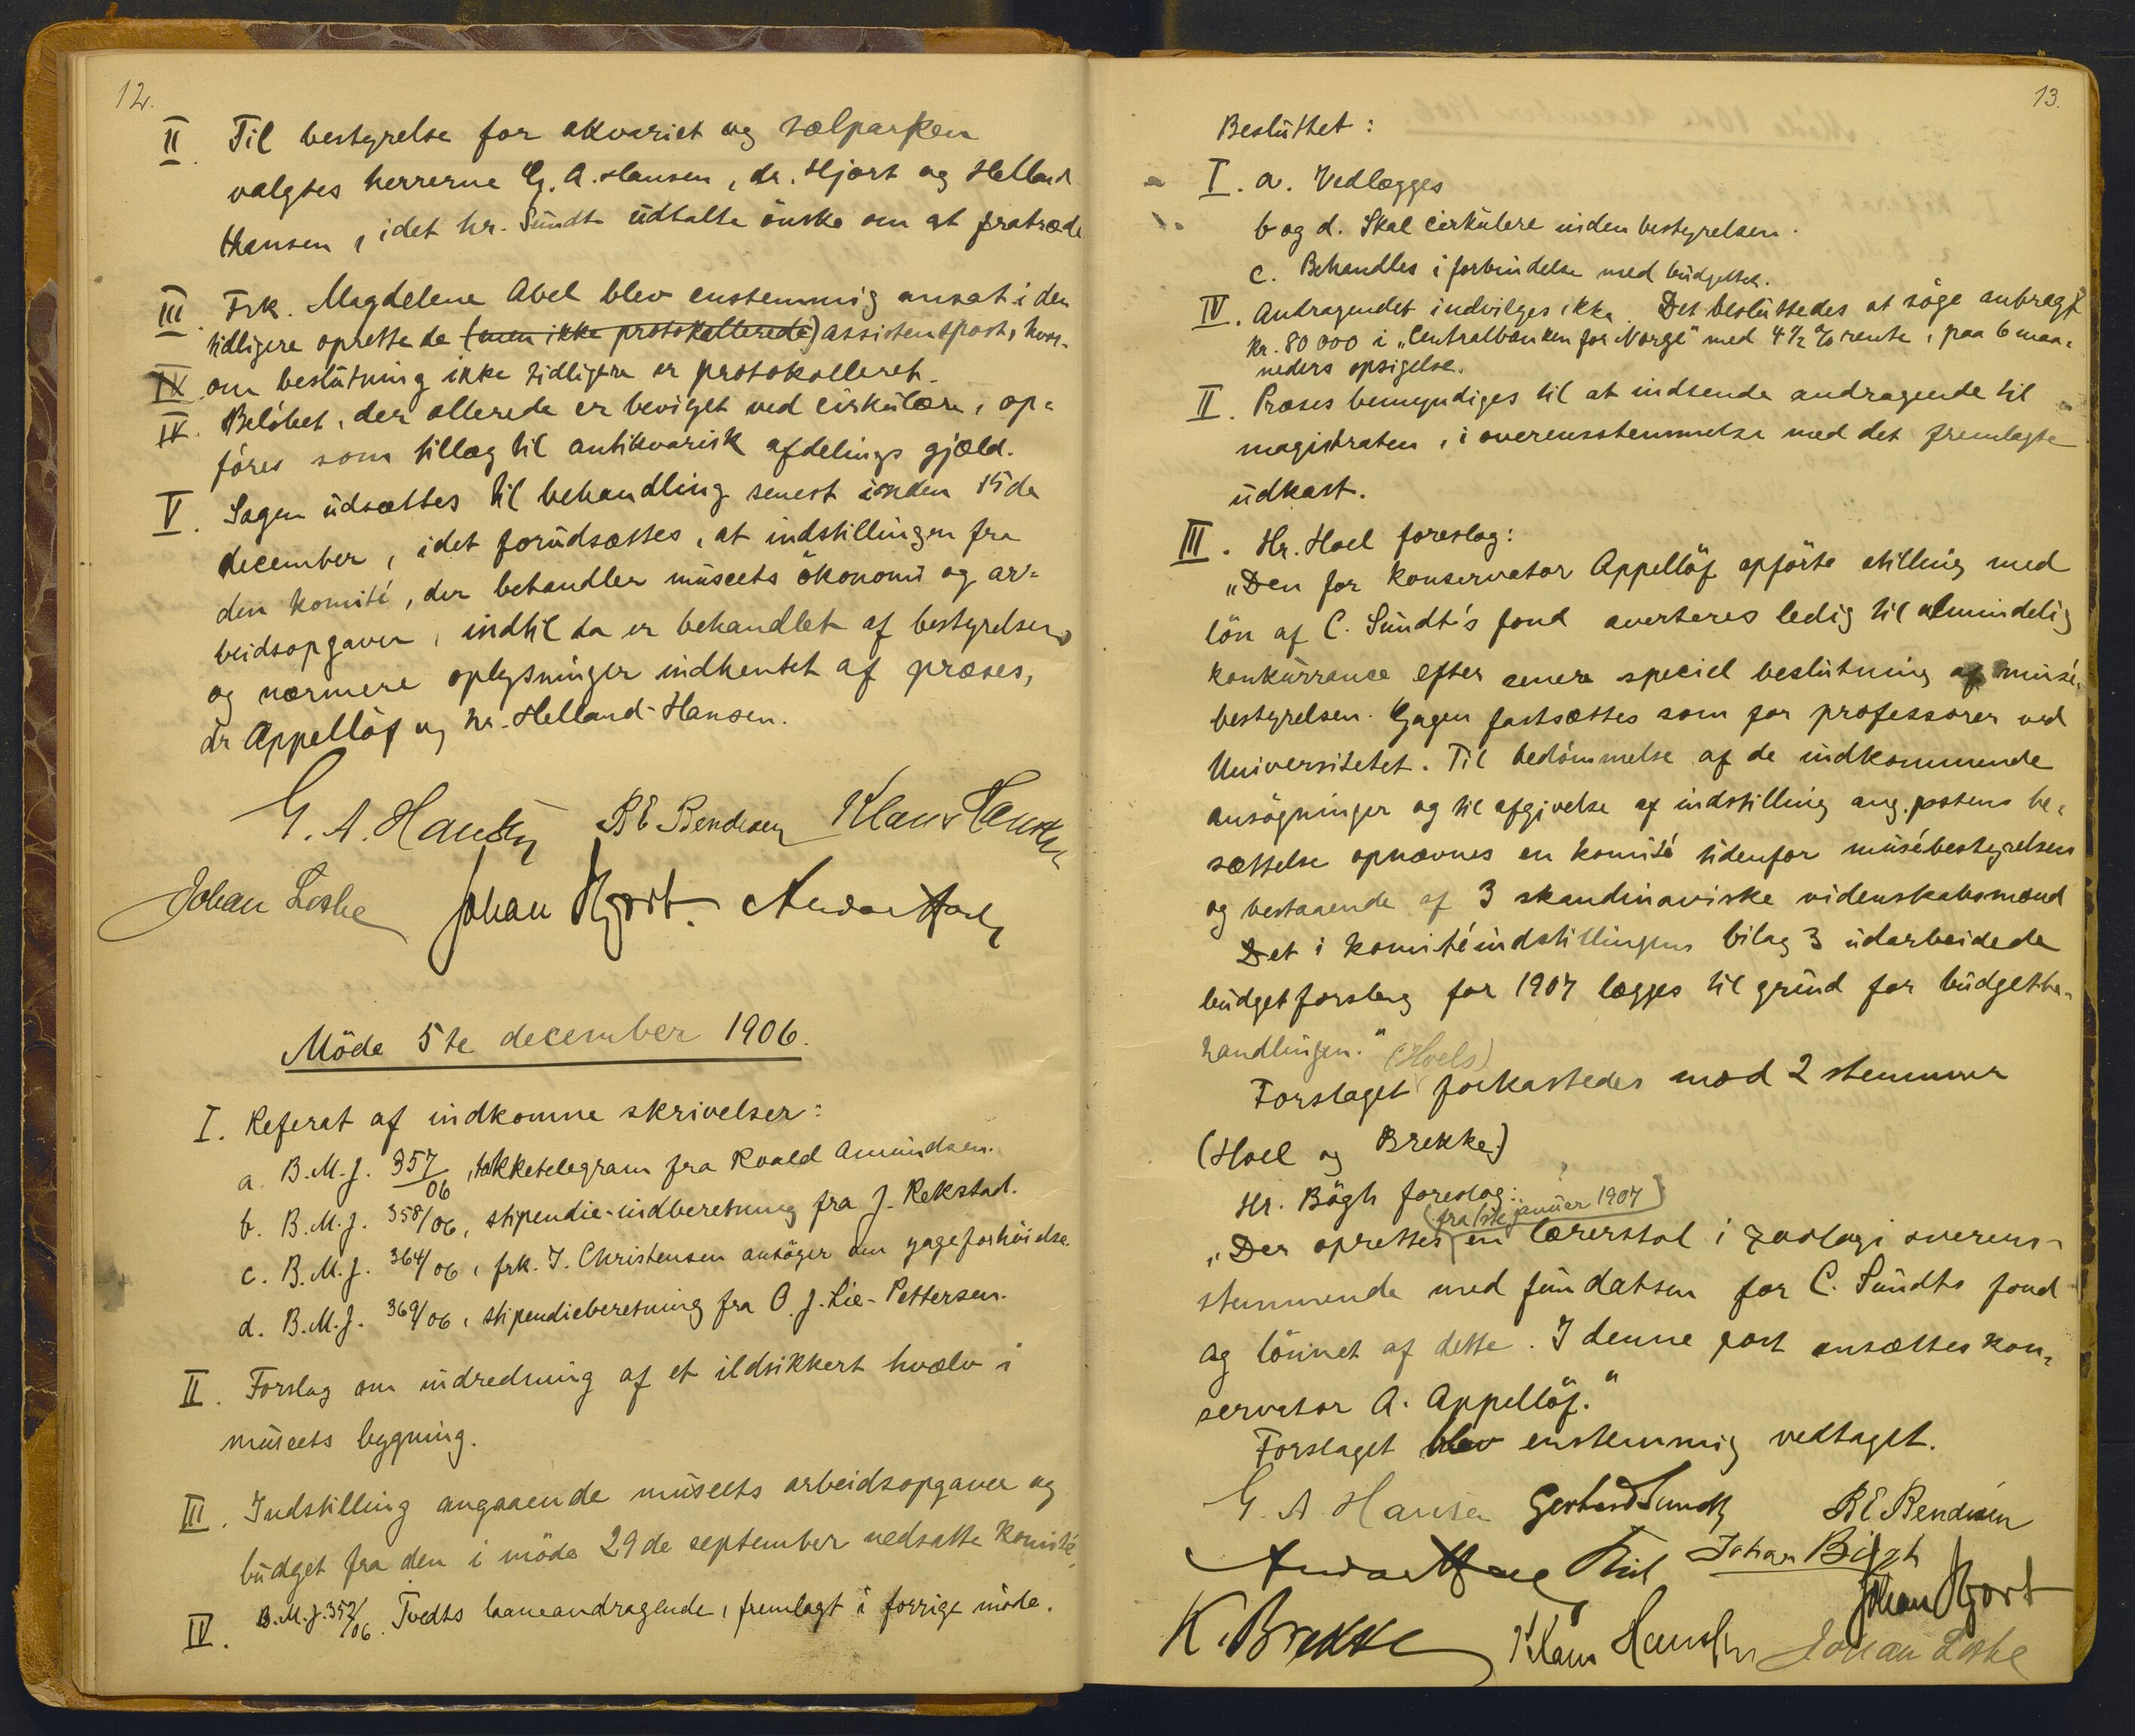 12.
II. Til bestyrelse for akvariet og sælparken
valgtes herrerne G. A. Hansen, dr. Hjort og Helland
Hansen, idet hr. Sundt udtalte önske om at fratræde
III. Frk. Magdelene Abel blev enstemmig ansat i den
tidligere oprettede (men ikke protokollerede) assistentpost, hvor-
IV om beslutning ikke tidligere er protokolleret.
IV. Belöbet, der allerede er bevilget ved cirkulære, op-
föres som tillæg til antikvarisk afdelings gjæld.
V. Sagen udsættes til behandling senest inden 15de
december, idet forudsættes, at indstillingen fra
den komité, der behandler museets ökonomi og ar-
beidsopgaver, indtil da er behandlet af bestyrelsen
og nærmere oplysninger indhentet af præses,
dr Appellöf og hr. Helland-Hansen.
G. A. Hansen BE Bendixen Klaus Hanssen
Johan Lothe Johan Hjort.
Möde 5te december 1906.
I. Referat af indkomne skrivelser:
a. B.M.J. 357/06, takketelegram fra Roald Amundsen.
b. B.M.J. 358/06, stipendie-indberetning fra J. Rekstad.
c. B.M.J. 364/06, frk. J. Christensen ansöger om gageforhöielse.
d. B.M.J. 369/06, stipendieberetning fra O. J. Lie-Pettersen.
II. Forslag om indredning af et ildsikkert hvælv i
museets bygning.
III. Indstilling angaaende museets arbeidsopgaver og
budget fra den i möde 29de september nedsatte komité.
IV. B.M.J. 352/06. Tvedts laaneandragende, fremlagt i forrige möde.
13.
Besluttet:
I. a. Vedlægges
b og d. Skal cirkulere inden bestyrelsen.
c. Behandles i forbindelse med budgettet.
IV. Andragendet indvilges ikke. Det besluttedes at söge anbragt
kr. 80 000 i „Centralbanken for Norge" med 4 1/2 % rente, paa 6 maa-
neders opsigelse.
II. Præses bemyndiges til at indsende andragende til
magistraten, i overensstemmelse med det fremlagte
udkast.
III. Hr. Hoel foreslog:
„Den for konservator Appellöf opförte stilling med
lön af C. Sundt's fond averteres ledig til almindelig
konkurrance efter senere speciel beslutning af musé-
bestyrelsen. Gagen fastsættes som for professorer ved
Universitetet. Til bedömmelse af de indkommende
ansögninger og til afgivelse af indstilling ang. postens be-
sættelse opnævnes en komité udenfor musébestyrelsen
og bestaaende af 3 skandinaviske videnskabsmænd
Det i komitéindstillingens bilag 3 udarbeidede
budgetforslag for 1907 lægges til grund for budgetbe-
handlingen."
(Hoels)
Forslaget forkastedes mod 2 stemmer
(Hoel og Brekke.)
Hr. Bögh foreslog:
(fra 1ste januar 1907)
„Der oprettes en lærerstol i zoologi overens-
stemmende med fundatsen for C. Sundts fond
og lönnet af dette. I denne post ansættes kon-
servator A. Appellöf."
Forslaget blev enstemmig vedtaget.
G. A Hansen Gerhard Sundt BE Bendixen
Johan Bögh
Johan Hjort
K. Brekke Klaus Hanssen Johan Lothe